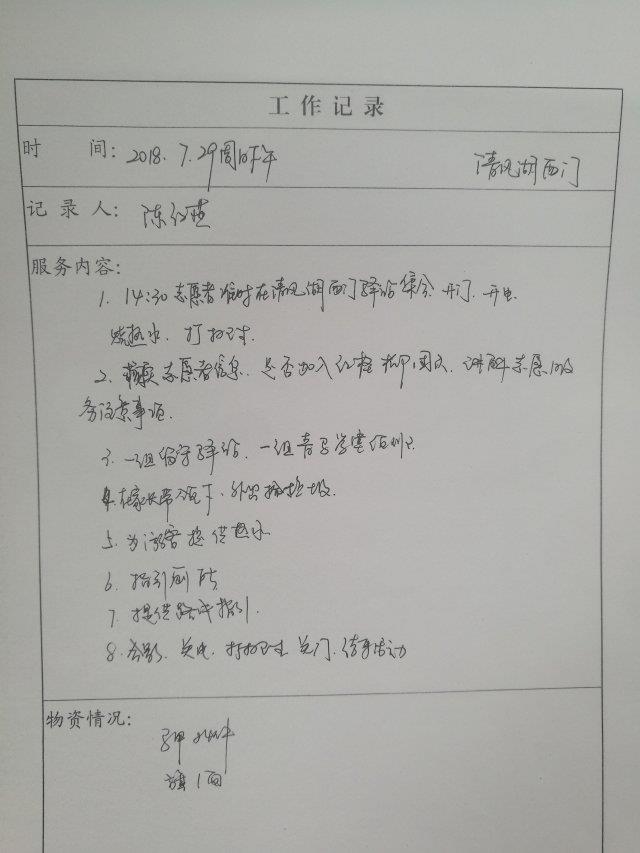 工作记录
时 间：2018.7.29周日下午 清风湖西门
记录人：陈红
服务内容：
1. 14:30志愿者准时在清风湖西门驿站集合 开门、开电
烧热水、打扫卫生.
2. 志愿者信息、是否加入 团文、讲解志愿服
务注意事项.
3. 一组留守驿站、一组
4. 在家长带领下、外出捡垃圾.
5. 为游客提供热水
6. 指引厕所
7. 提供路线指引.
8. 合影、关电、打扫卫生 关门、结束活动
物资情况：
马甲
旗1面